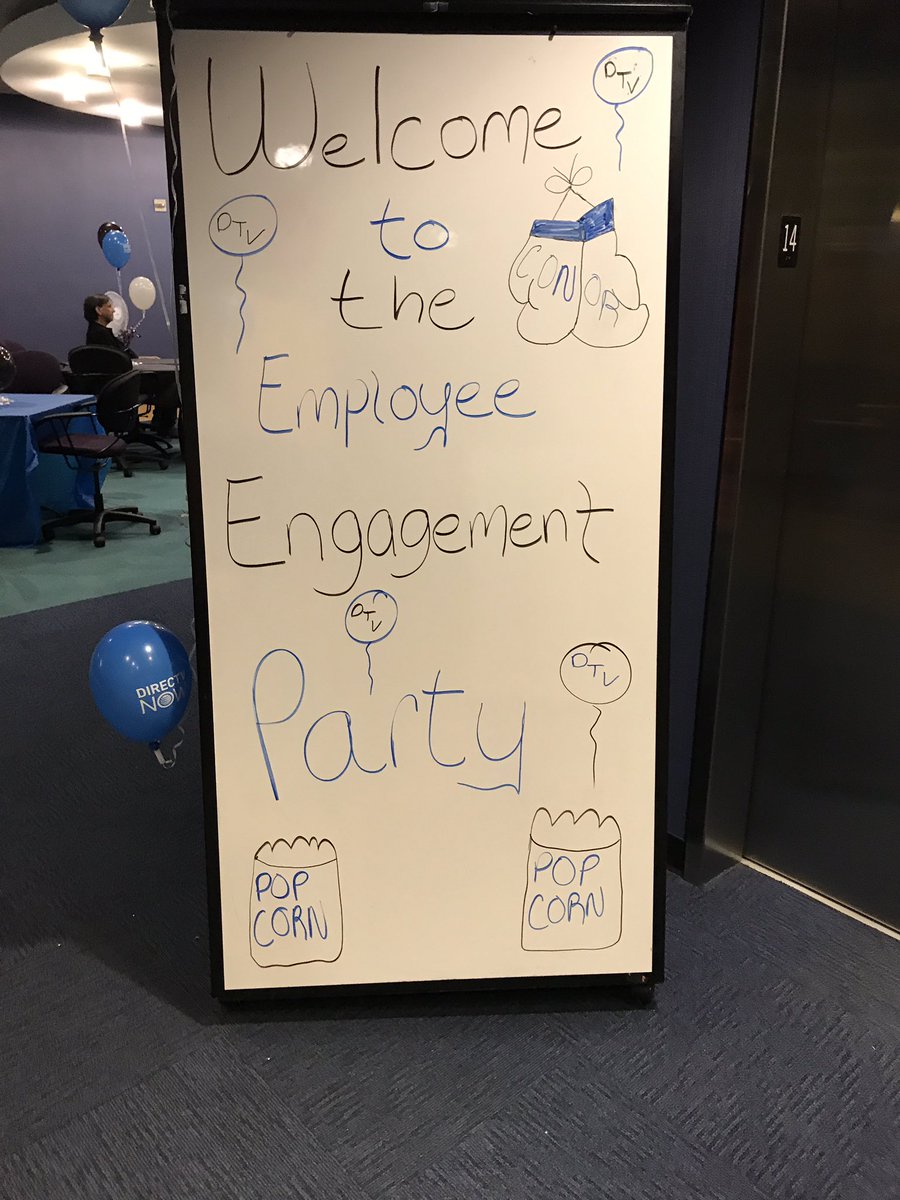 Welcome
DTV
DTV
to
CONOR
the
14
Employee
Engagement
DTV
Party
DTV
DIRECTV
NOW
POP
CORN
POP
CORN